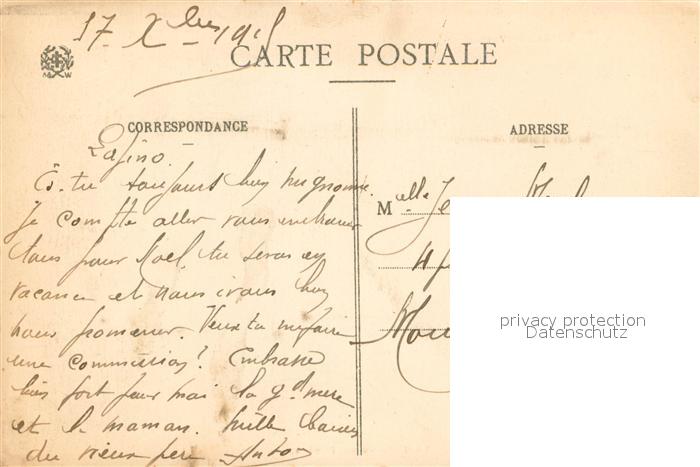 17 Xbre 191
CARTE POSTALE
M W
CORRESPONDANCE
ADRESSE
Es-tu toujours bien mignonne.
Je compte aller vous embrasser
tous pour Noel, tu seras en
vacances et nous irons bien
nous promener. Veux-tu me faire
une commission? Embrasse
bien fort pour moi la gd mere
et la maman. Mille baisers
du vieux pere
Melle
4
Mou
privacy protection
Datenschutz